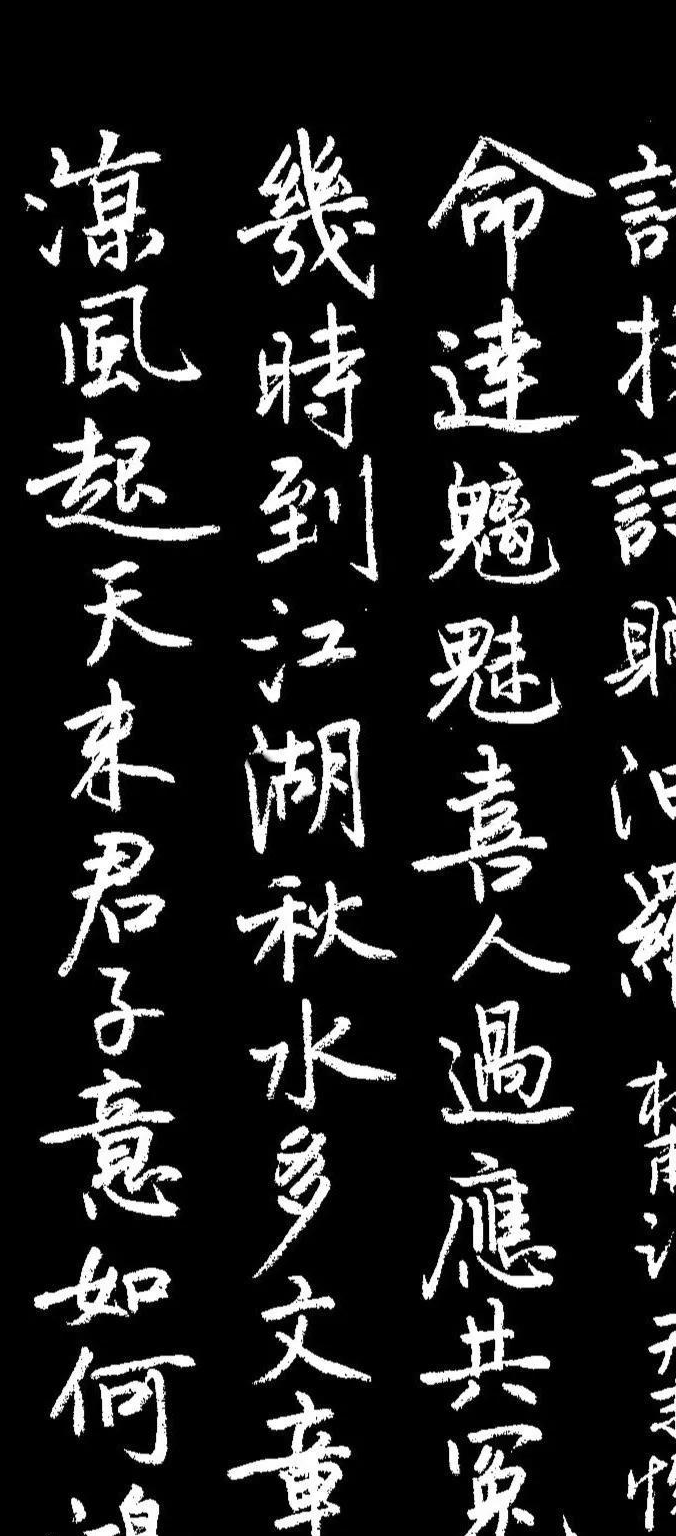 涼風起天末君子意如何鴻
幾時到江湖秋水多文章
命達魑魅喜人過應共冤
語投詩贈汨羅 杜甫詩 天末懷